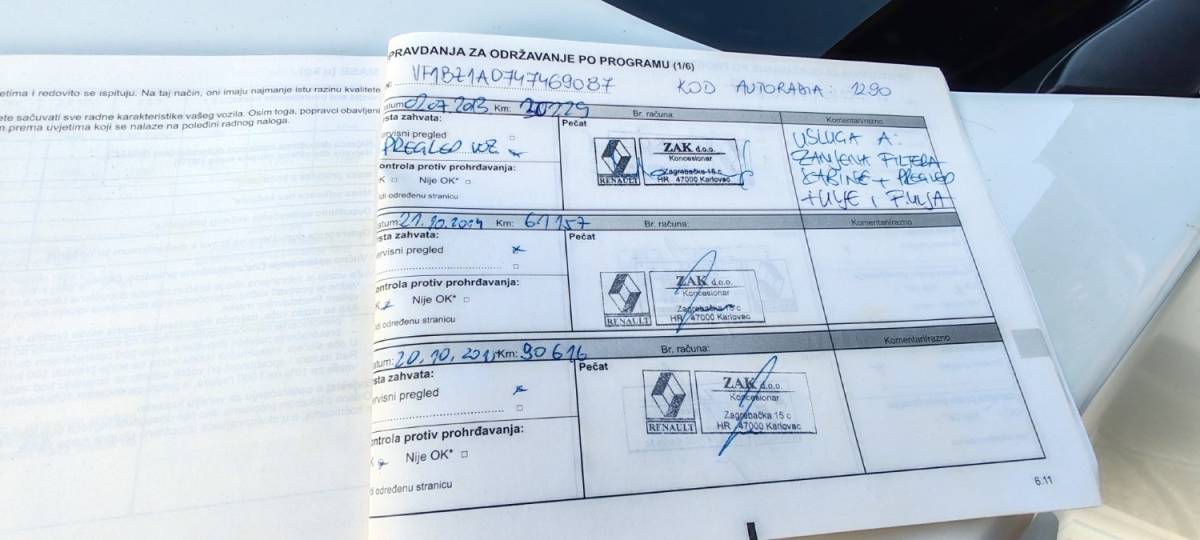 PRAVDANJA ZA ODRŽAVANJE PO PROGRAMU (1/6)
VF1BZ1A0747469087 KOD AUTORADIA: 1290
etima i redovito se ispituju. Na taj način, oni imaju najmanje istu razinu kvalitete
ete sačuvati sve radne karakteristike vašeg vozila. Osim toga, popravci obavljeni
prema uvjetima koji se nalaze na poleđini radnog naloga.
atum: 02.07.2013 Km: 30229 Br. računa: Komentari/razno
rsta zahvata: Pečat
ervisni pregled
PREGLED VOZ
ontrola protiv prohrđavanja:
K Nije OK*
di određenu stranicu
RENAULT
ZAK d.o.o.
Koncesionar
Zagrebačka 15 c
HR 47000 Karlovac
USLUGA A:
ZAMJENA FILTERA
KABINE + PREGLED
+ ULJE I F.ULJA
atum: 21.10.2014 Km: 61157 Br. računa: Komentari/razno
rsta zahvata: Pečat
ervisni pregled
ontrola protiv prohrđavanja:
K Nije OK*
di određenu stranicu
RENAULT
ZAK d.o.o.
Koncesionar
Zagrebačka 15 c
HR 47000 Karlovac
atum: 20.10.2015 Km: 90616 Br. računa: Komentari/razno
sta zahvata: Pečat
ervisni pregled
ntrola protiv prohrđavanja:
K Nije OK*
di određenu stranicu
RENAULT
ZAK d.o.o.
Koncesionar
Zagrebačka 15 c
HR 47000 Karlovac
6.11